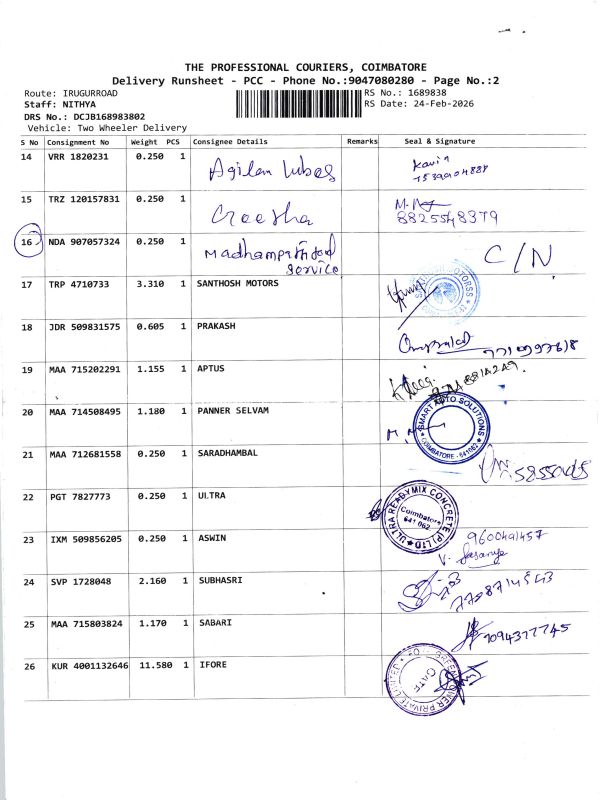 THE PROFESSIONAL COURIERS, COIMBATORE
Delivery Runsheet - PCC - Phone No.:9047080280 - Page No.:2
Route: IRUGURROAD RS No.: 1689838
Staff: NITHYA RS Date: 24-Feb-2026
DRS No.: DCJB168983802
Vehicle: Two Wheeler Delivery
S No Consignment No Weight PCS Consignee Details Remarks Seal & Signature
14 VRR 1820231 0.250 1 Agilan lubes Kavin
15 TRZ 120157831 0.250 1 Creesha 8825548379
16 NDA 907057324 0.250 1 Madhampatti food service C/N
17 TRP 4710733 3.310 1 SANTHOSH MOTORS
18 JDR 509831575 0.605 1 PRAKASH
19 MAA 715202291 1.155 1 APTUS
20 MAA 714508495 1.180 1 PANNER SELVAM SMART AUTO SOLUTIONS COIMBATORE - 641062
21 MAA 712681558 0.250 1 SARADHAMBAL
22 PGT 7827773 0.250 1 ULTRA ULTRA READYMIX CONCRETE (P) LTD Coimbatore 641 062
23 IXM 509856205 0.250 1 ASWIN 9600491457
24 SVP 1728048 2.160 1 SUBHASRI
25 MAA 715803824 1.170 1 SABARI 7094377745
26 KUR 4001132646 11.580 1 IFORE GATE